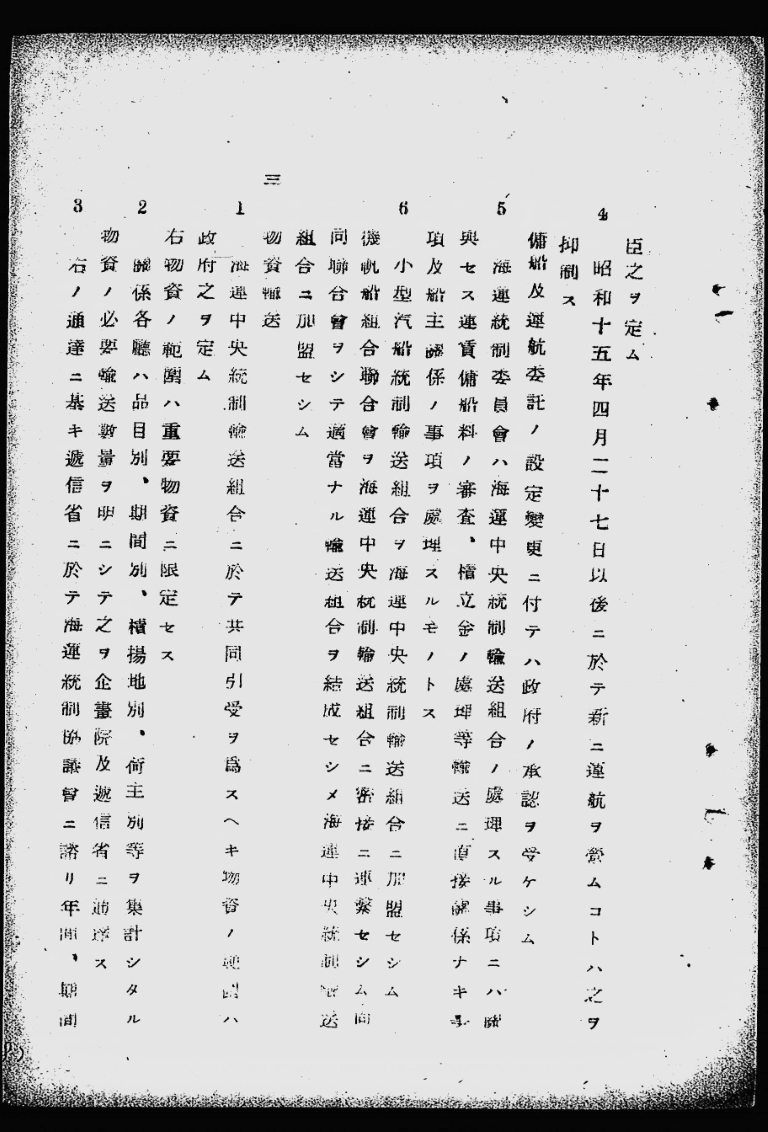 臣之ヲ定ム
4 昭和十五年四月二十七日以後ニ於テ新ニ運航ヲ營ムコトハ之ヲ
抑制ス
傭船及運航委託ノ設定變更ニ付テハ政府ノ承認ヲ受ケシム
5 海運統制委員會ハ海運中央統制輸送組合ノ處理スル事項ニハ關
與セス運賃傭船料ノ審査、積立金ノ處理等輸送ニ直接關係ナキ事
項及船主關係ノ事項ヲ處理スルモノトス
6 小型汽船統制輸送組合ヲ海運中央統制輸送組合ニ加盟セシム
機帆船組合聯合會ヲ海運中央統制輸送組合ニ密接ニ連繫セシム同
同聯合會ヲシテ適當ナル輸送組合ヲ結成セシメ海運中央統制輸送
組合ニ加盟セシム
三 物資輸送
1 海運中央統制輸送組合ニ於テ共同引受ヲ爲スヘキ物資ノ範圍ハ
政府之ヲ定ム
右物資ノ範圍ハ重要物資ニ限定セス
2 關係各廳ハ品目別、期間別、積揚地別、荷主別等ヲ集計シタル
物資ノ必要輸送數量ヲ明ニシテ之ヲ企畫院及遞信省ニ通達ス
3 右ノ通達ニ基キ遞信省ニ於テ海運統制協議會ニ諮リ年間、期間